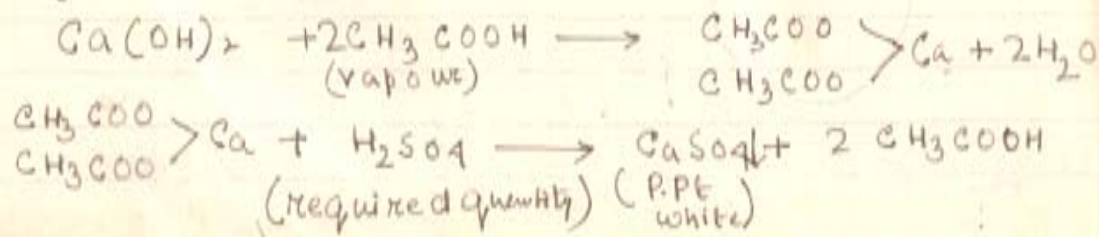 Ca(OH)₂ +2CH₃COOH ⟶ CH₃COO CH₃COO > Ca + 2H₂O
(vapour)
CH₃COO CH₃COO > Ca + H₂SO₄ ⟶ CaSO₄↓ + 2 CH₃COOH
(required quantity) (P.Pt white)